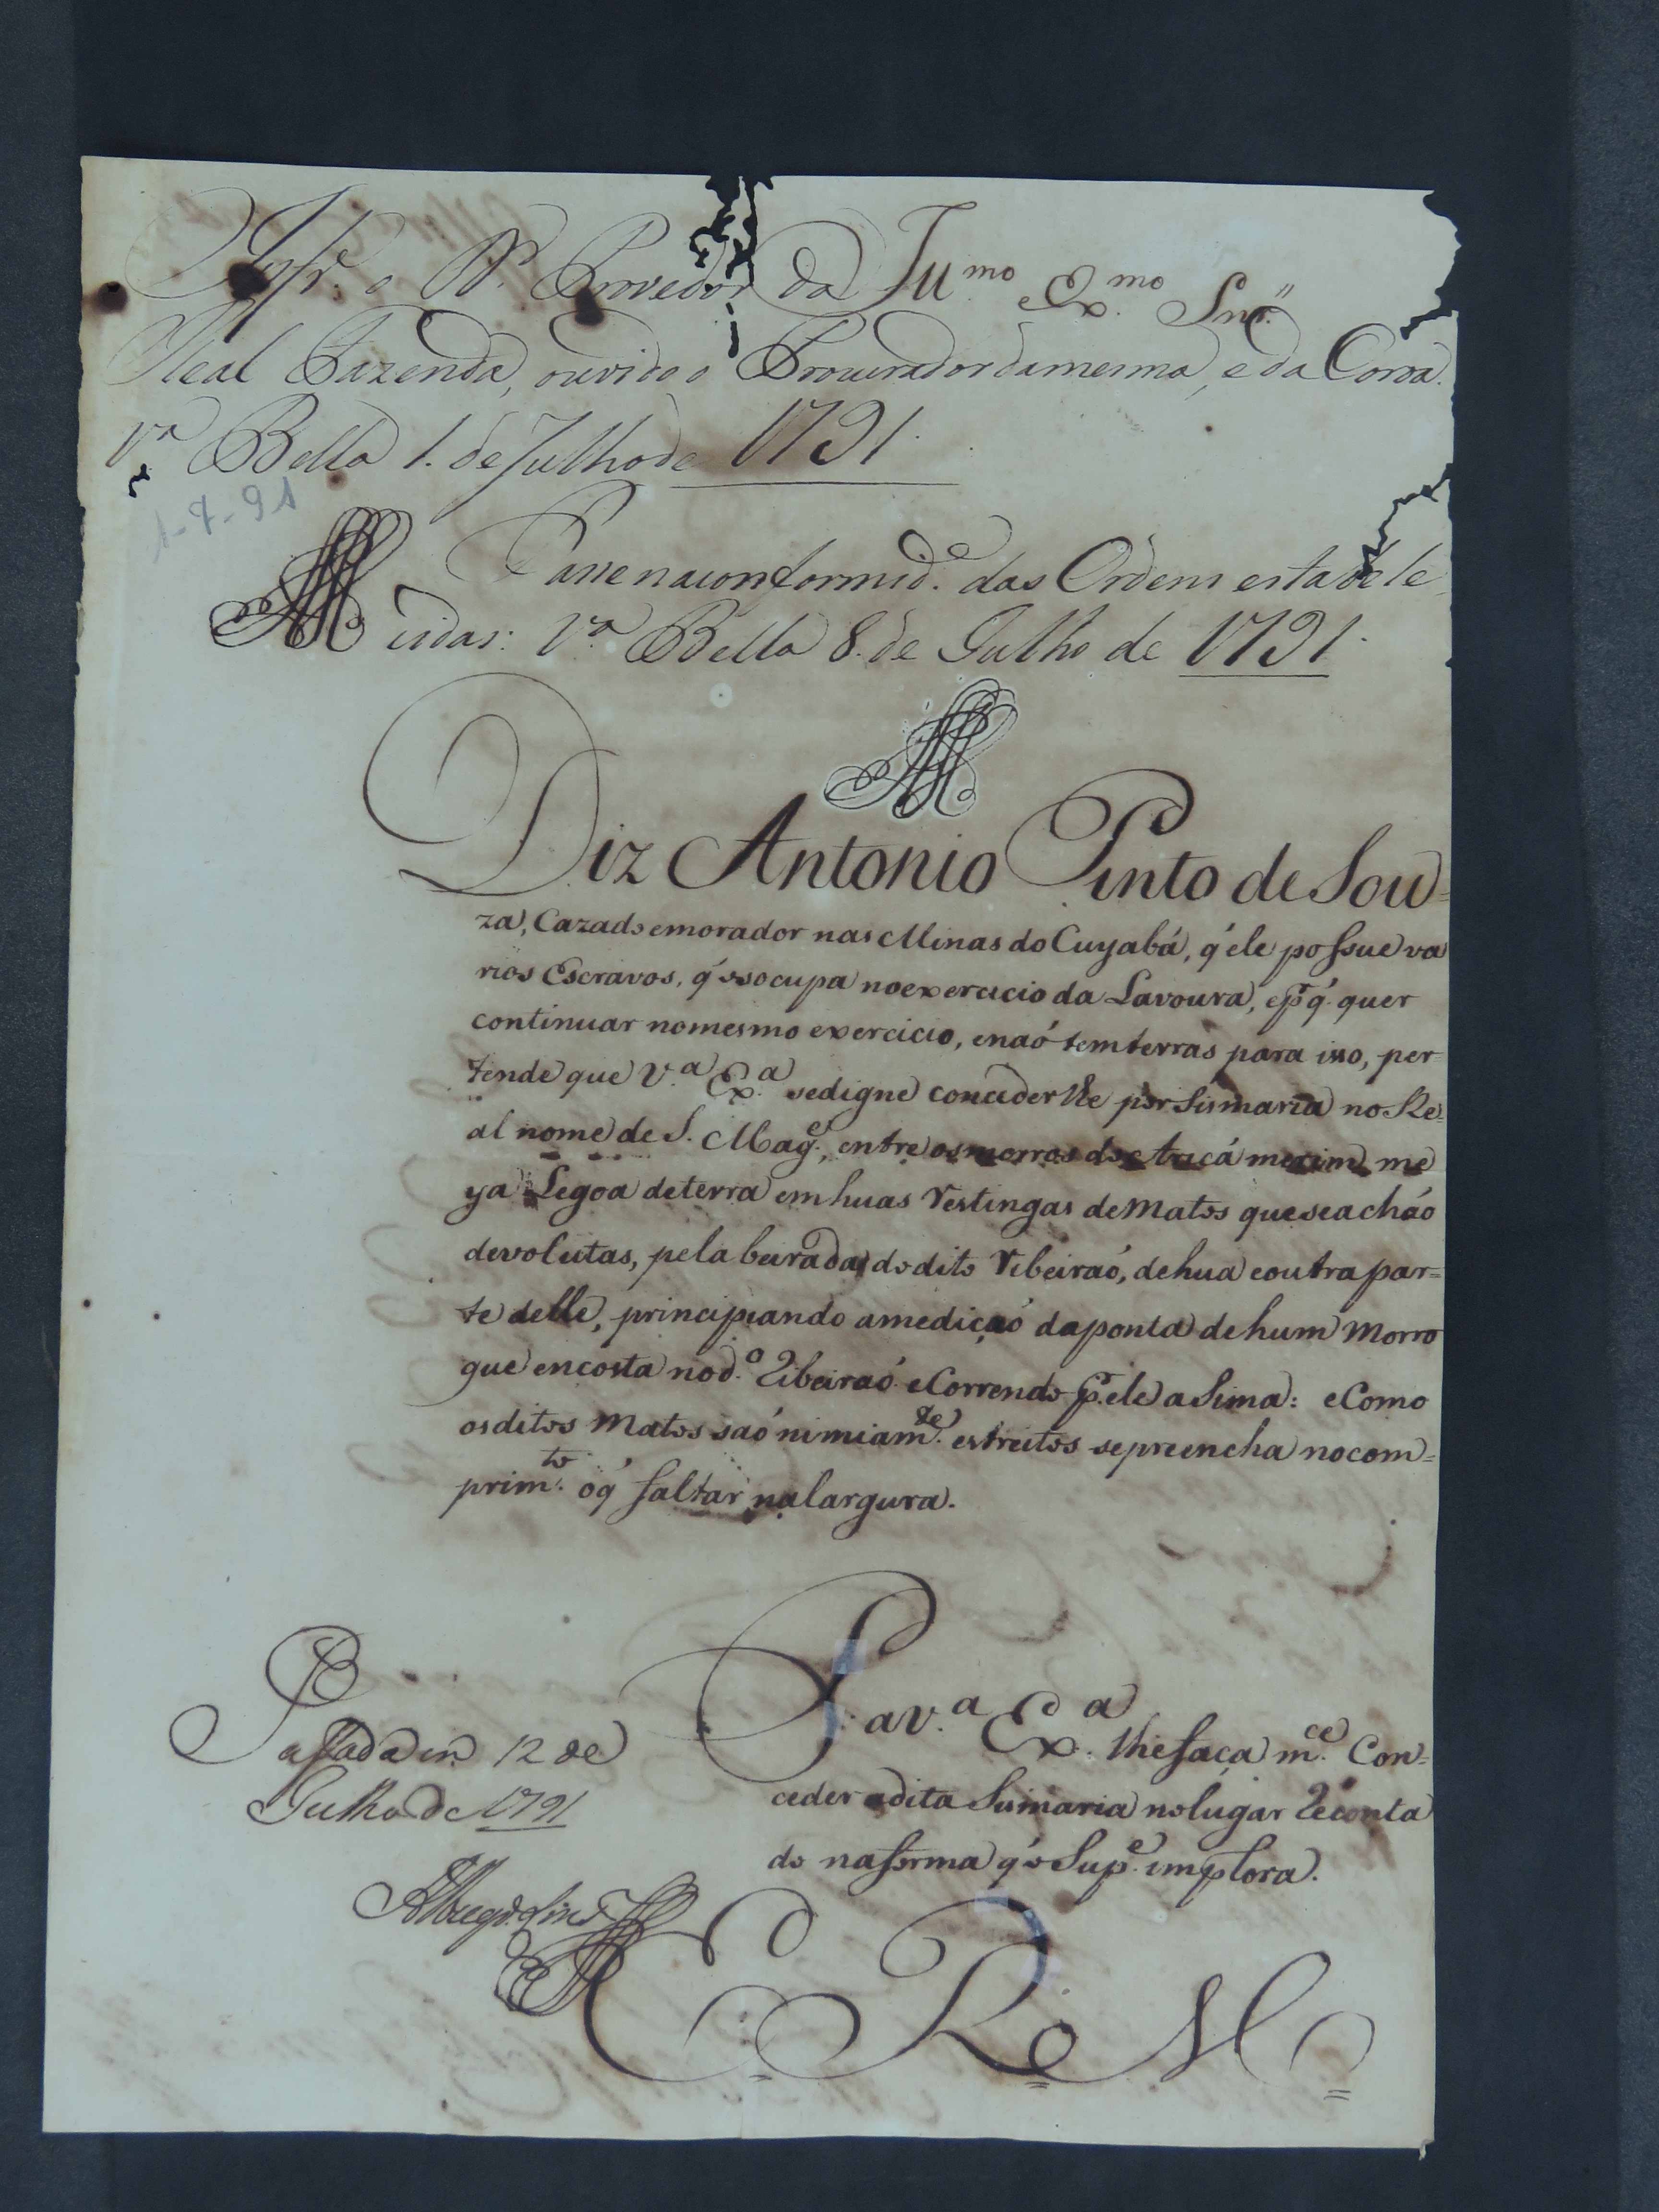 Infr.e o D.r Provedor da
Ill.mo Ex.mo Snr.
Real Fazenda, ouvido o Procurador da mesma, e da Coroa.
V.a Bella 1. de Julho de 1791
1-7-91
Passe na conformid.e das Ordens estabele
cidas: V.a Bella 8. de Julho de 1791.
Diz Antonio Pinto de Sou=
za, Cazado e morador nas Minas do Cuyabá, q́ ele possue va
rios Escravos, q́ os ocupa no exercicio da Lavoura, e p.r q́ quer
continuar no mesmo exercicio, e naó tem terras para isso, per
tende que V.a Ex.a se digne conceder lhe por Sismaria no Re=
al nome de S. Mag.e, entre os morros do Aricá merim, me
ya Legoa de terra em huas Restingas de Matos que se acháo
devolutas, pela beirada do dito Ribeiraó, de hua e outra par=
te delle, principiando a mediçaó da ponta de hum Morro
que encosta no d.o Ribeiraó e Correndo p.r ele a Sima: e Como
os ditos Matos saó nimiam.te estreitos se preencha no com=
prim.to o q́ faltar na largura.
P. a V.a Ex.a lhe faça m.ce Con=
ceder a dita Sismaria no lugar Reconta
do na forma q́ o Sup.e implora.
Passada em 12 de
Julho de 1791
E R M